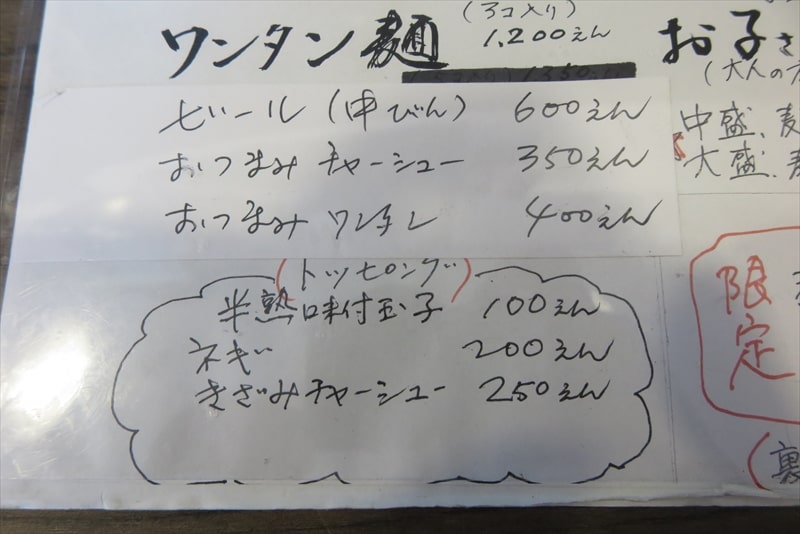 (3コ入り)
ワンタン麺 1,200えん
ビール(中びん) 600えん
おつまみチャーシュー 350えん
おつまみワンタン 400えん
(トッピング)
半熟味付玉子 100えん
ネギ 200えん
きざみチャーシュー 250えん
お子さ
(大人の
中盛、麦
大盛、麦
限定
(裏